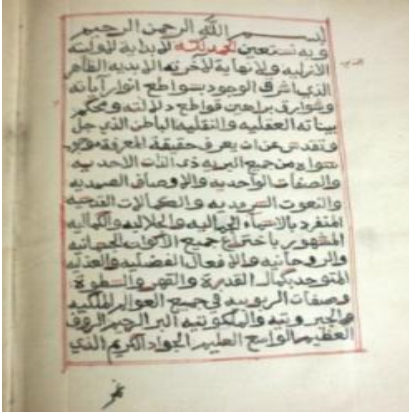 بسم الله الرحمن الرحيم
وبه نستعين الحمد لله الذي لا بداية لأوليته
الأزلية ولا نهاية لآخريته الأبدية الظاهر
الذي أشرق الوجود بسواطع أنوار آياته
وشوارق براهين قواطع دلالته ومحكم
بيناته العقلية والنقلية الباطن الذي جل
وتقدس عن أن يعرف حقيقة المعرفة
سواه من جميع البرية ذي الذات الأحدية
والصفات الواحدية والأوصاف الصمدية
والنعوت السرمدية والكمالات القدسية
المتفرد بالأسماء الجمالية والجلالية والكمالية
المشهور باختراع جميع الأكوان الجسمانية
والروحانية والأفعال الفضلية والعدلية
المتوحد بكمال القدرة والقهر والسطوة
وصفات الربوبية في جميع العوالم الملكية
والجبروتية والملكوتية البر الرحيم الروف
العظيم الواسع العليم الجواد الكريم الذي